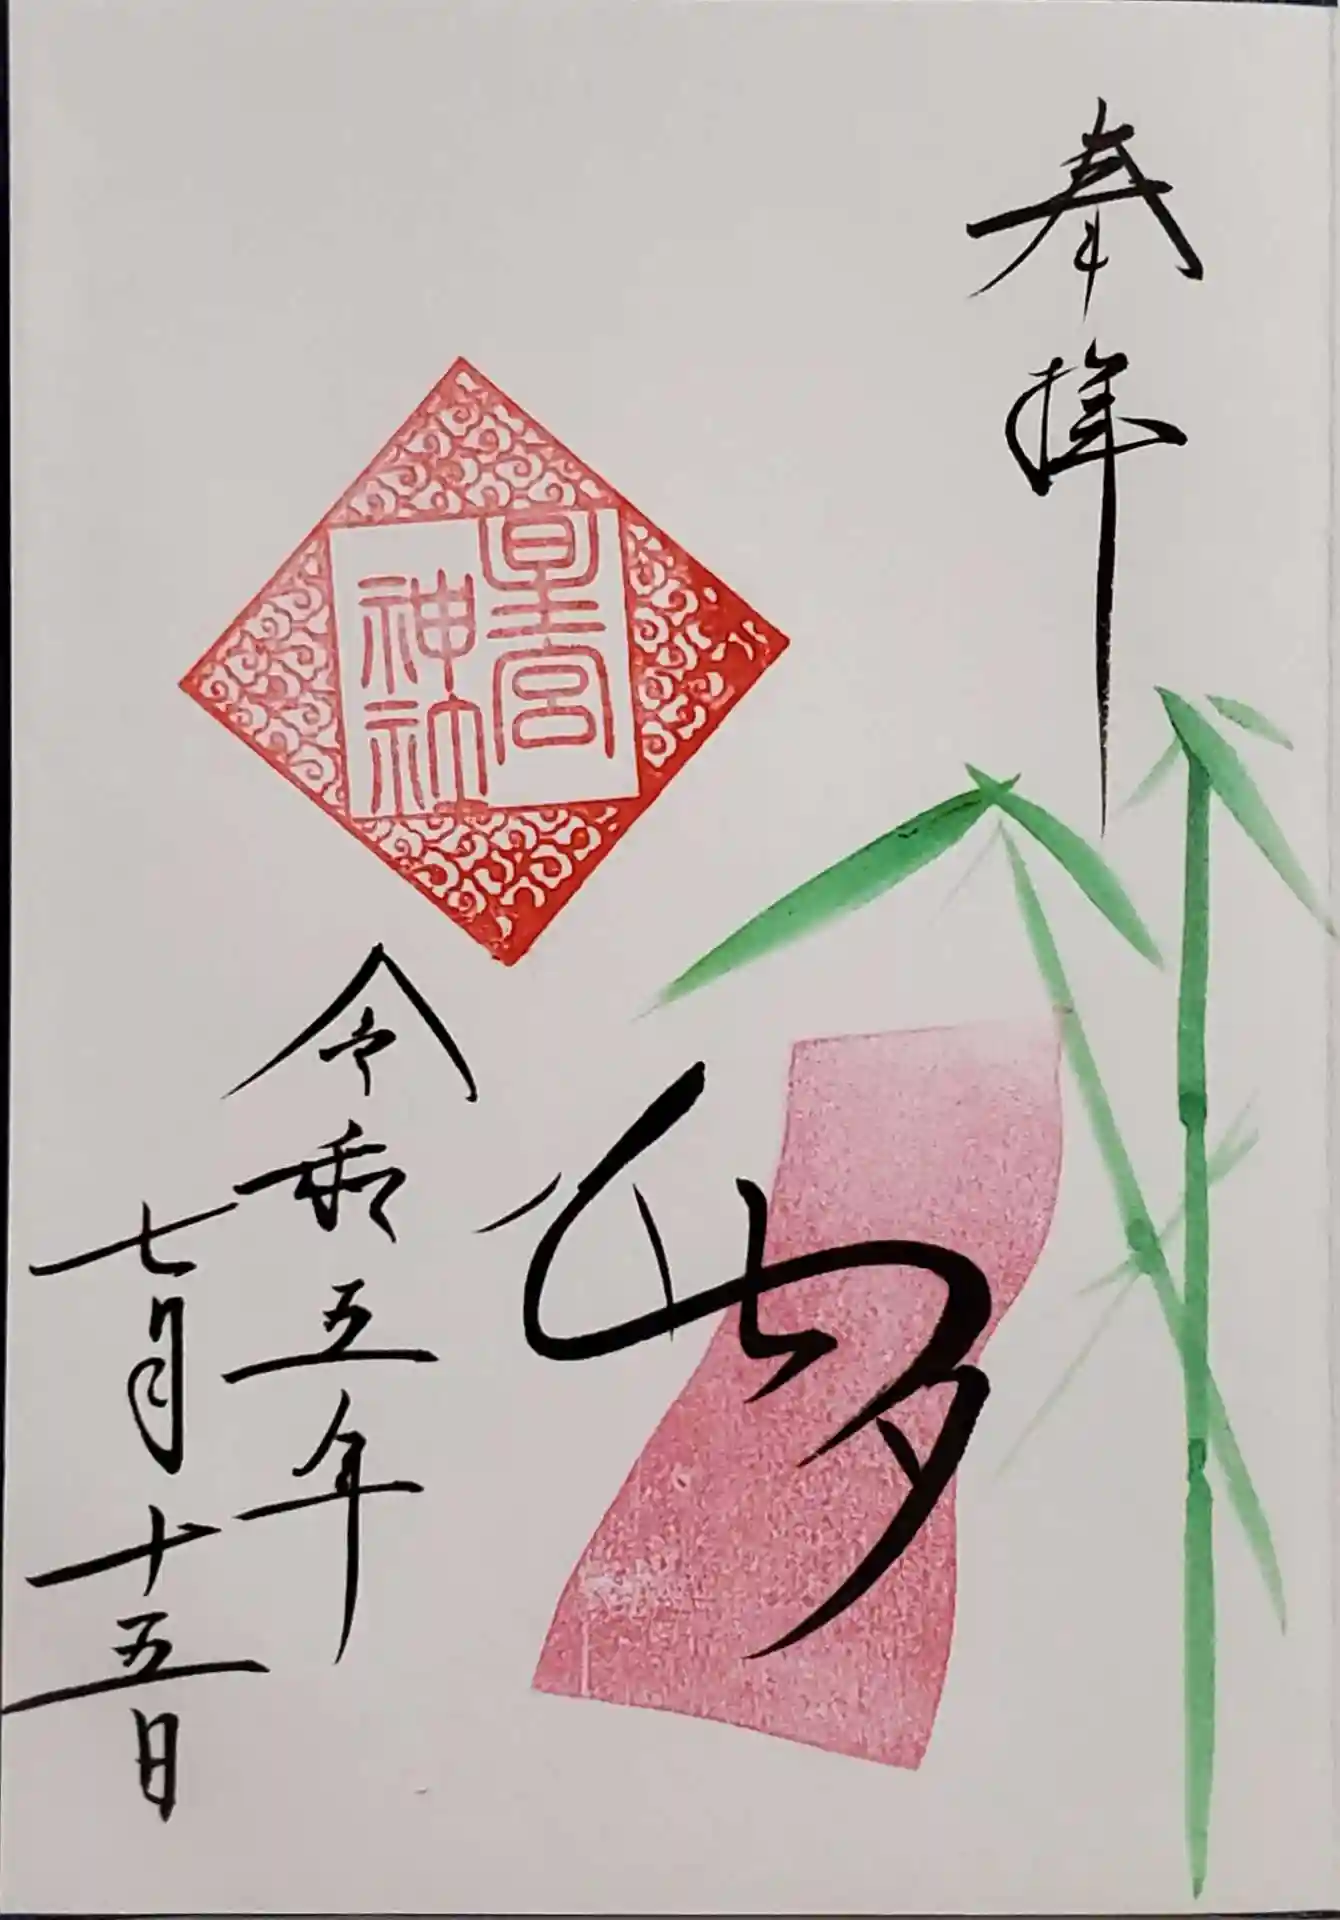 奉拝
皇宮
神社
令和五年
七月十五日